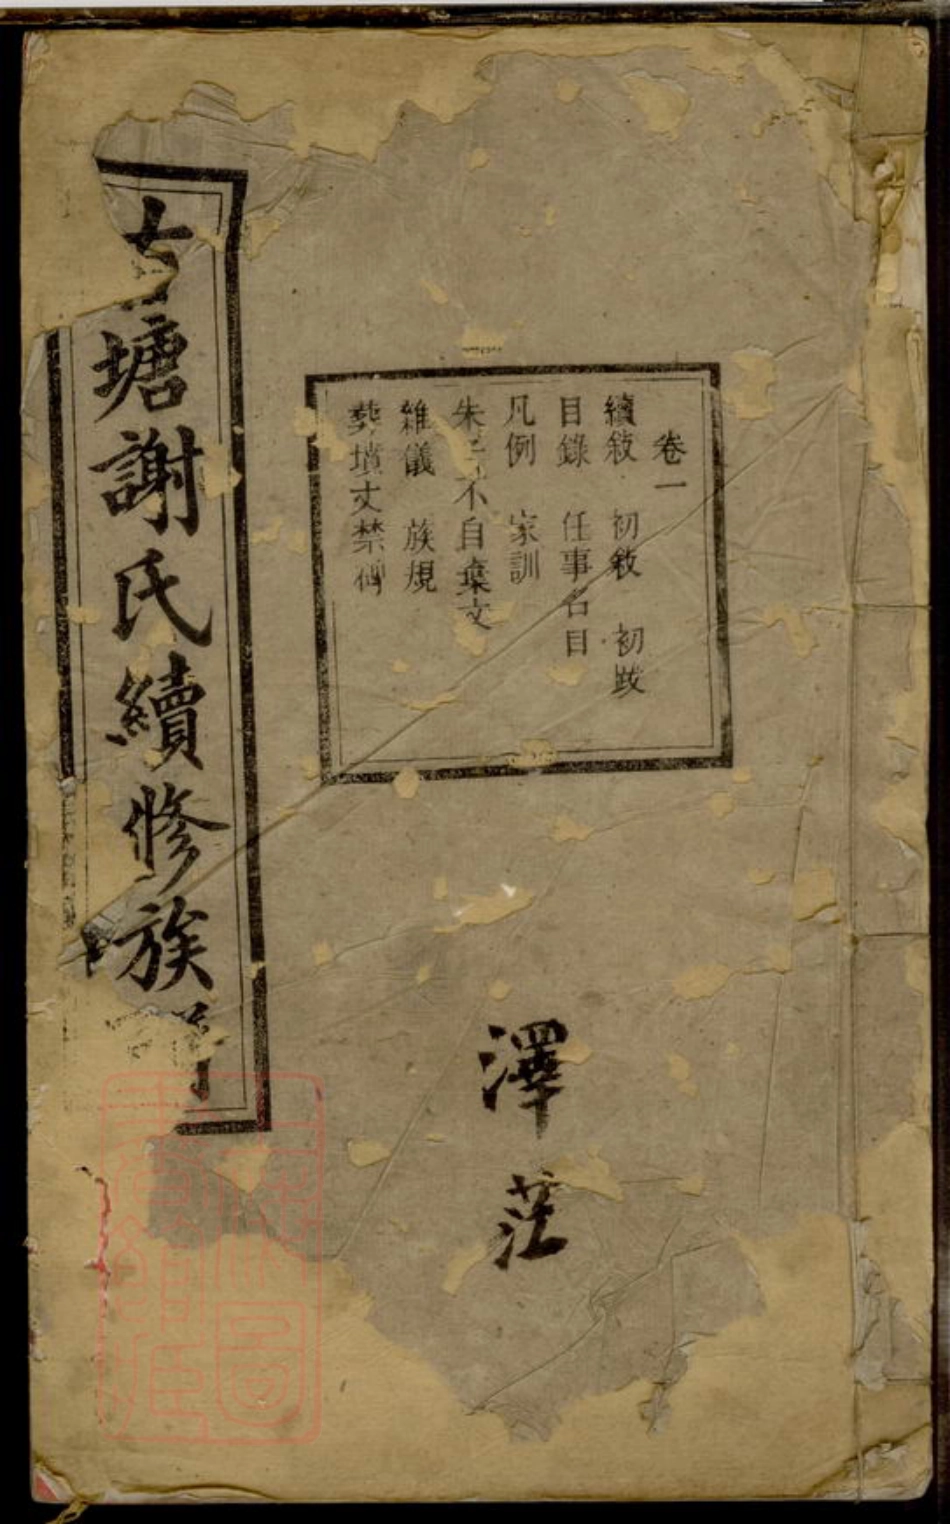 卷一
續敘 初敘 初跋
目錄 任事名目
凡例 家訓
朱子不自棄文
雜儀 族規
葬墳丈禁碑
古塘謝氏續修族譜
澤茫